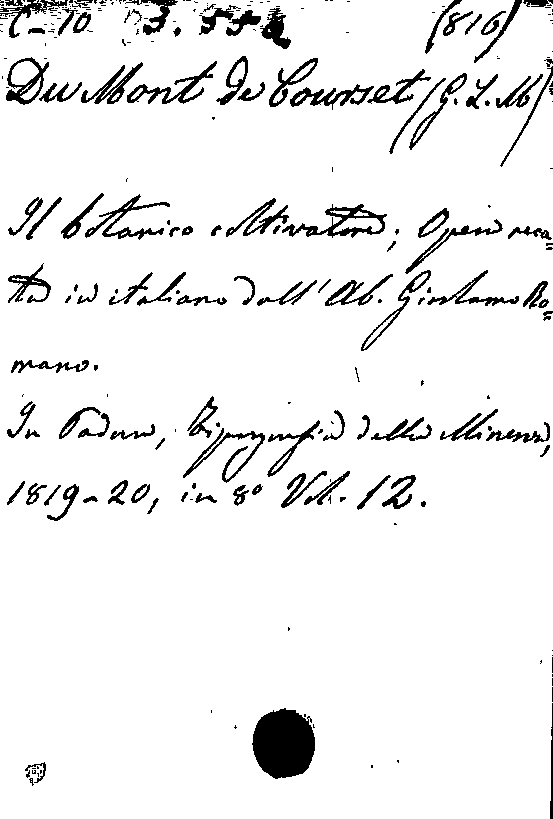 C-10 3.55 (816)
Du Mont de Courset (G. L. M)
Il botanico coltivatore; Opera reca=
ta in italiano dall' Ab. Girolamo Ro=
mano.
In Padova, Tipografia della Minerva,
1819-20, in 8º Vol. 12.